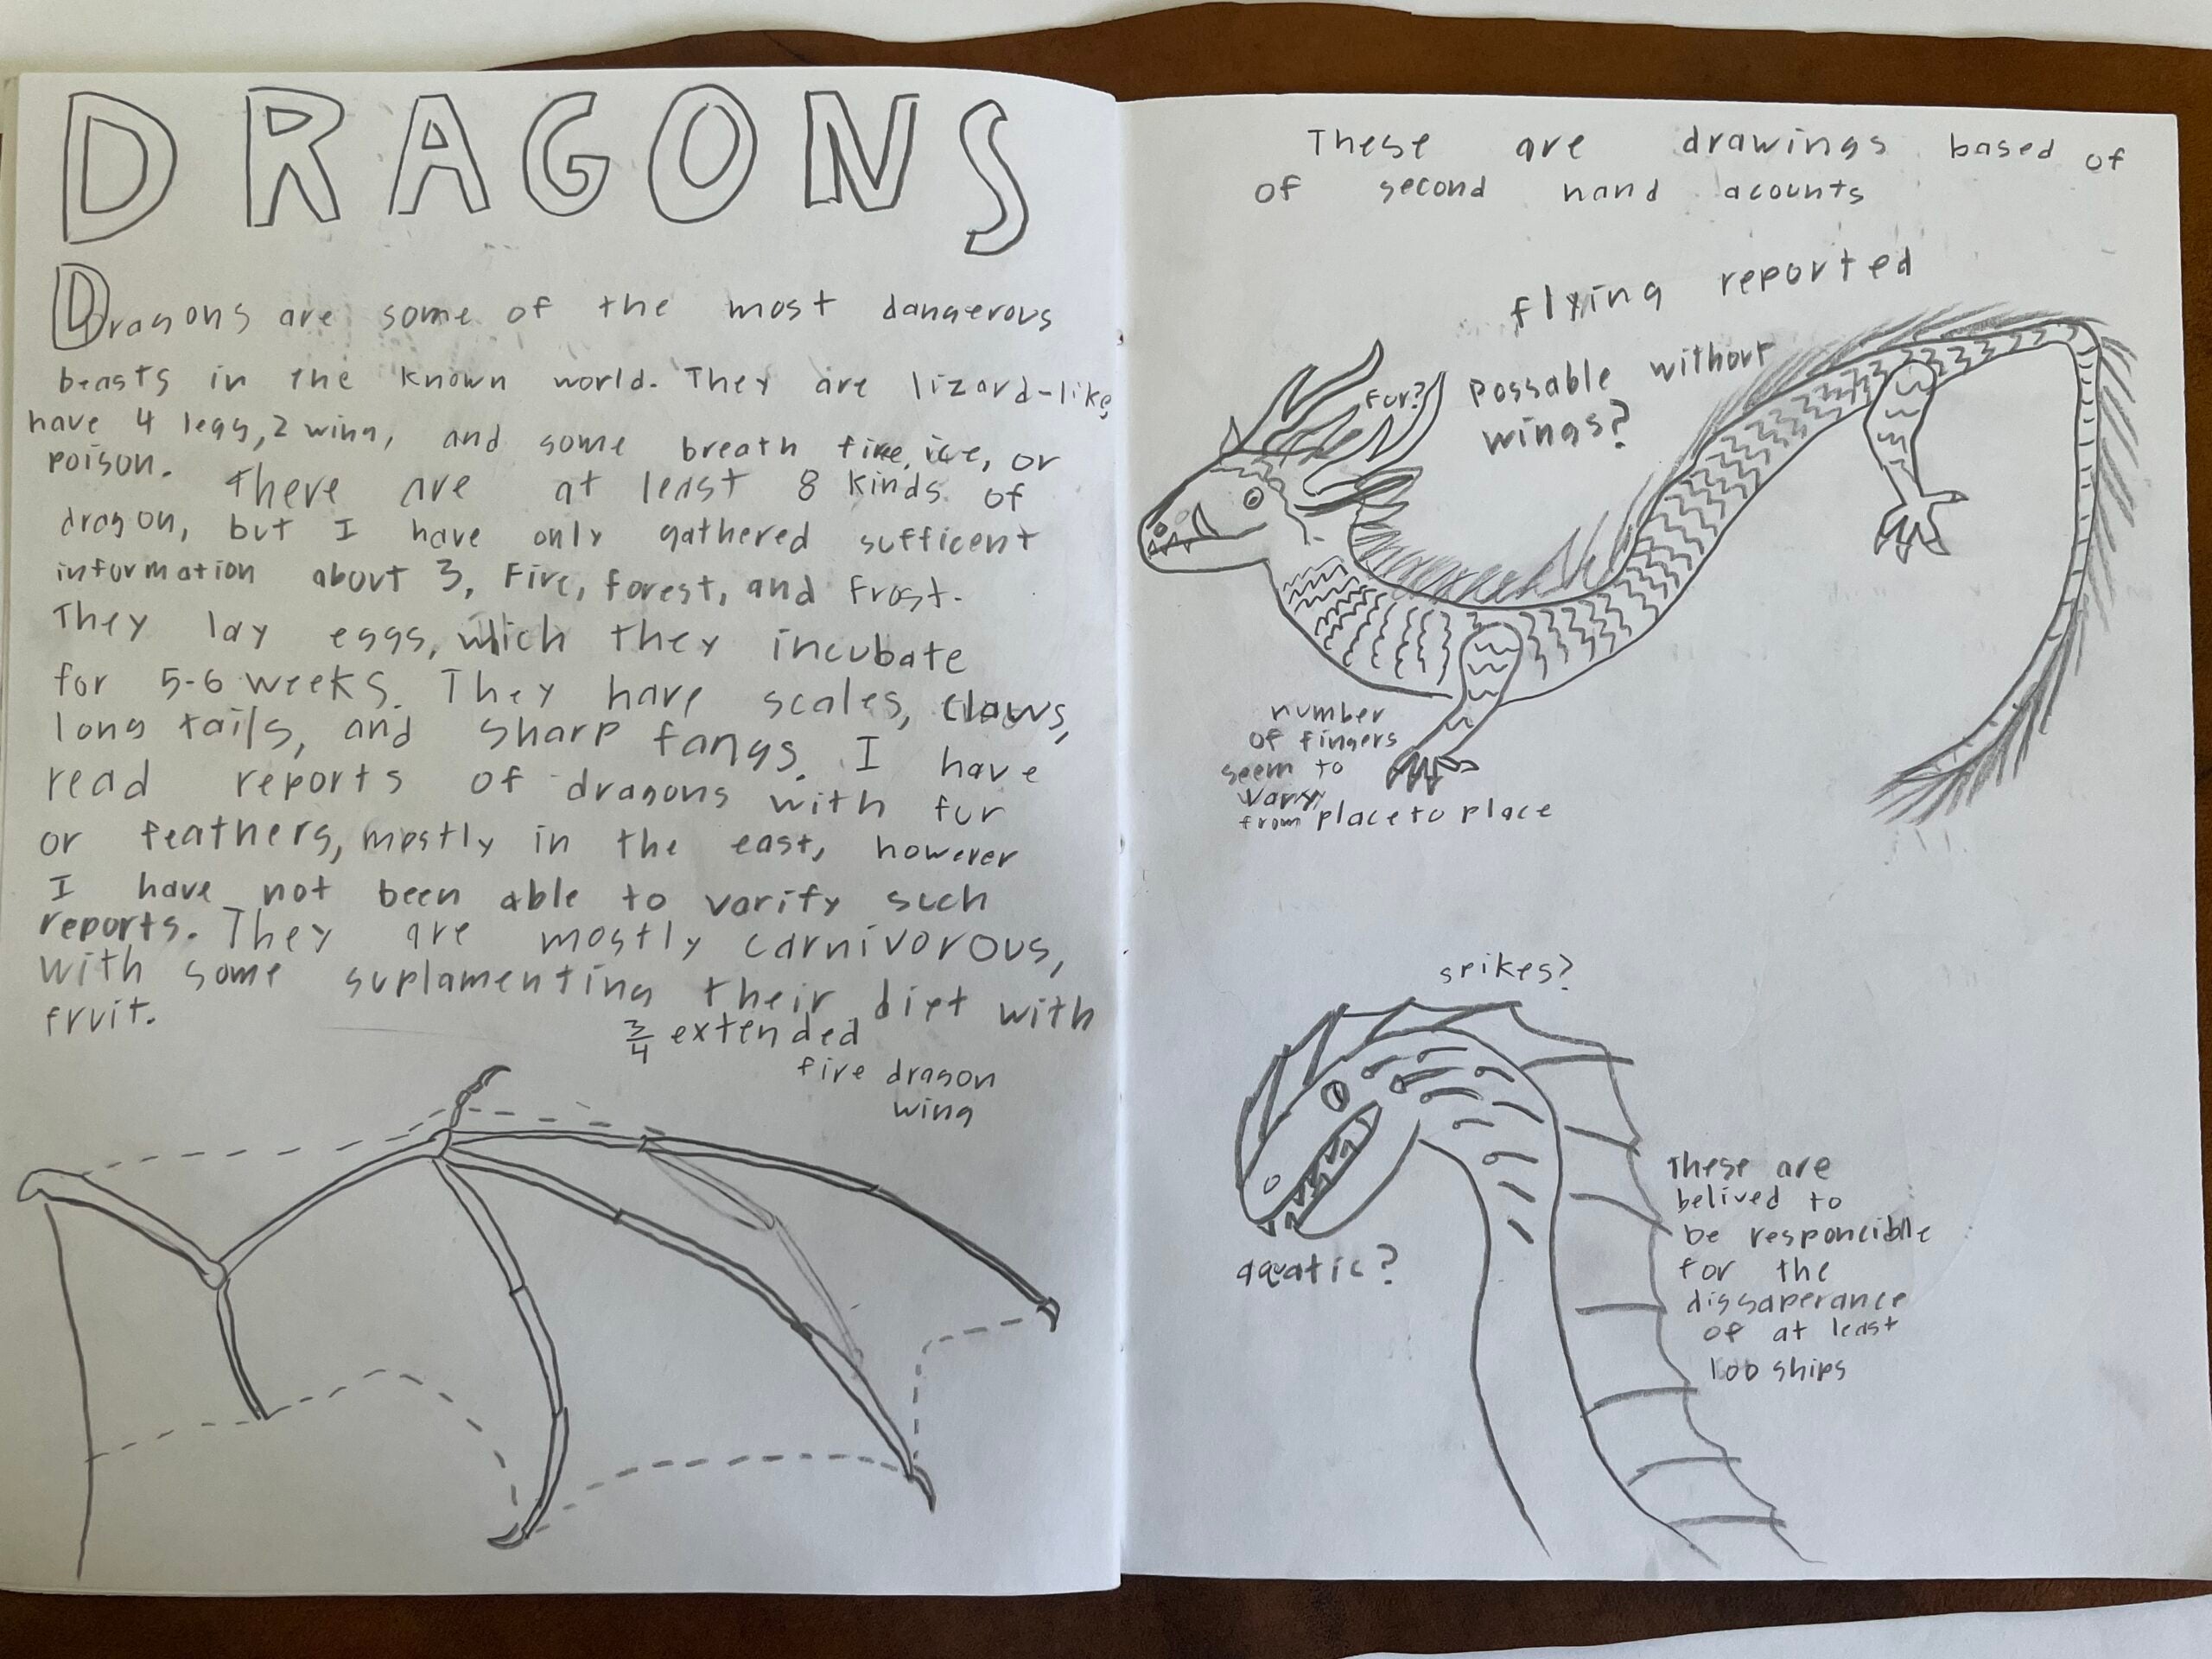 DRAGONS
Dragons are some of the most dangerous
beasts in the known world. They are lizard-like,
have 4 legs, 2 wing, and some breath fire, ice, or
poison. There are at least 8 kinds of
dragon, but I have only gathered sufficent
information about 3, Fire, forest, and frost.
They lay eggs, which they incubate
for 5-6 weeks. They have scales, claws,
long tails, and sharp fangs. I have
read reports of dragons with fur
or feathers, mostly in the east, however
I have not been able to varify such
reports. They are mostly carnivorous,
with some suplamenting their diet with
fruit.
3/4 extended
fire dragon
wing
These are drawings based of
of second hand acounts
flying reported
Possable without
wings?
Fur?
number
of fingers
seem to
vary
from place to place
spikes?
aquatic?
These are
belived to
be responcible
for the
dissaperance
of at least
100 ships